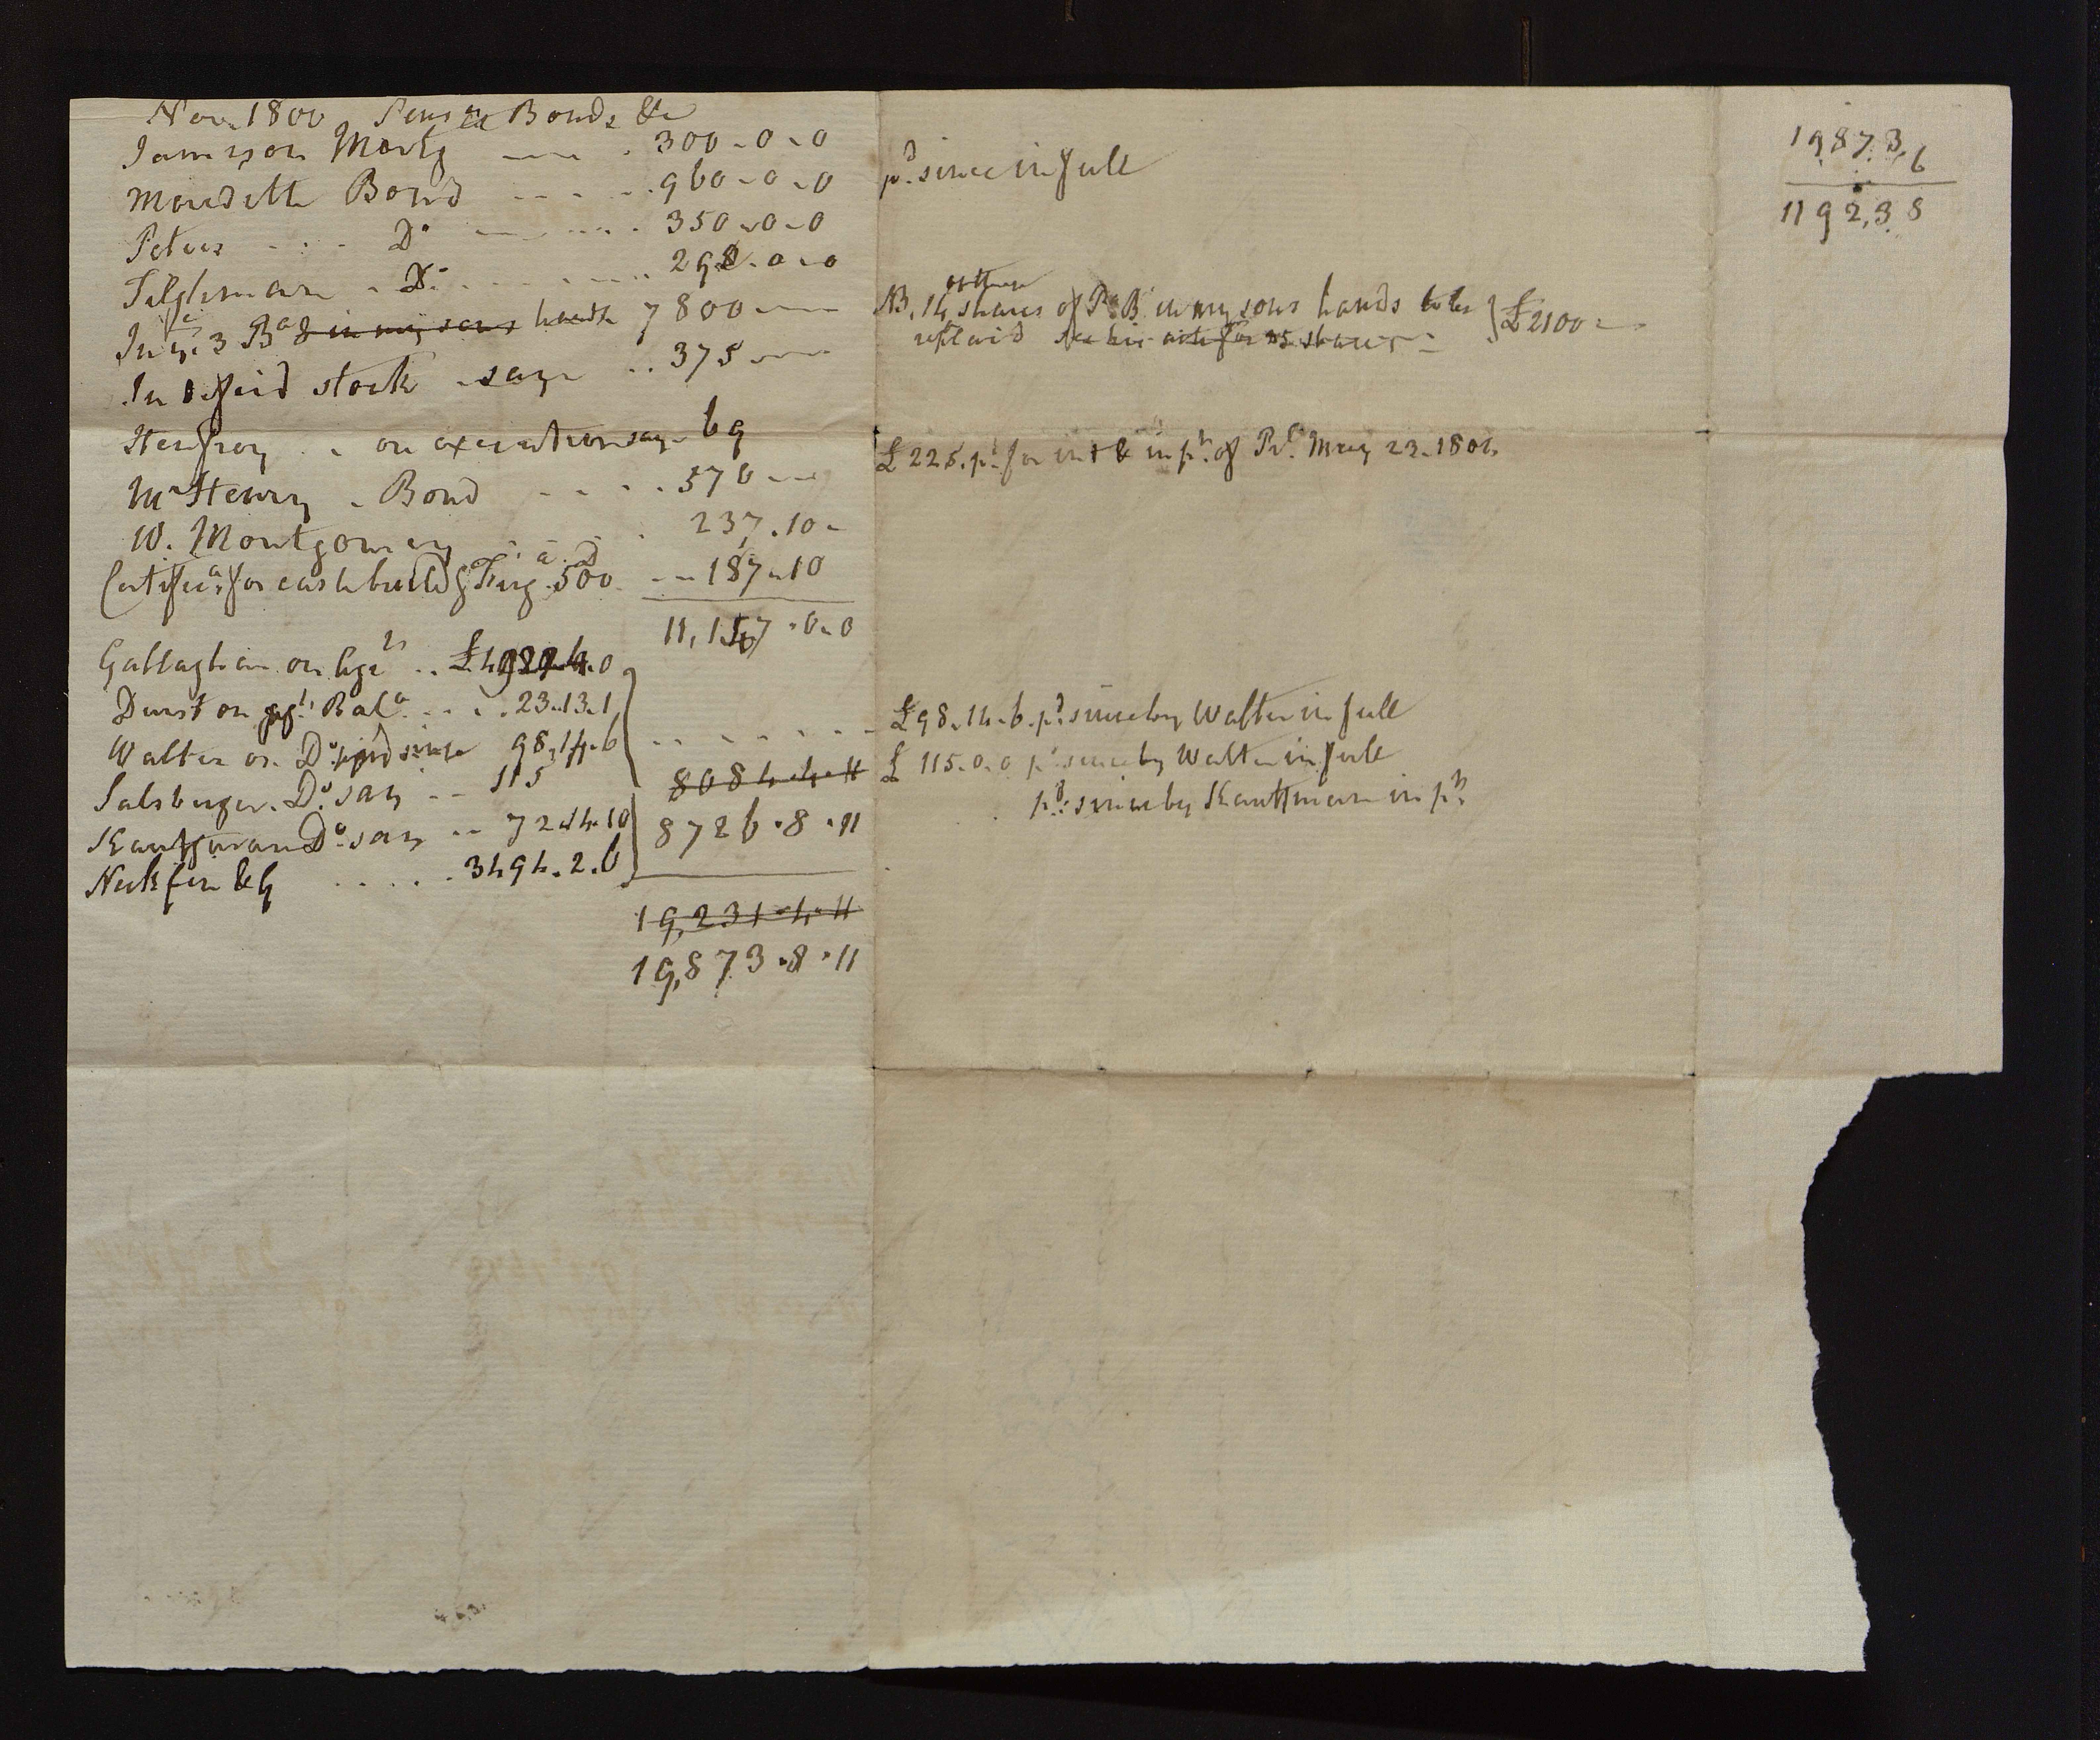 Nov. 1800 Bonds &c
Jamison Mortg 300-0-0
Bond 960-0-0
Peters Do 350-0-0
Tilghman Do 298-0-0
In ye 3 Ba & in my sons hands 7800
In stock say 375
on execution say 69
McHenry Bond 576
W. Montgomery 237.10
for cash 500 187.10
11,157.0.0
Gallagher on .0
Durst on Bala 23.13.1
Walter on Do since 98.14.6
Salsburger Do say 115
Kauffman Do say 724.10
3494.2.6
8084.4.11
8726.8.11
19,231.4.11
19,873.8.11
pd since in full
NB. 14 shares of in my sons hands to be £2100
for shares
£225. pd for int & in pt of May 23. 1801
£98.14.6. pd since by Walter in full
£115.0.0 pd since by Walter in full
pd since by Kauffman in pt
19873.
6
11923 8